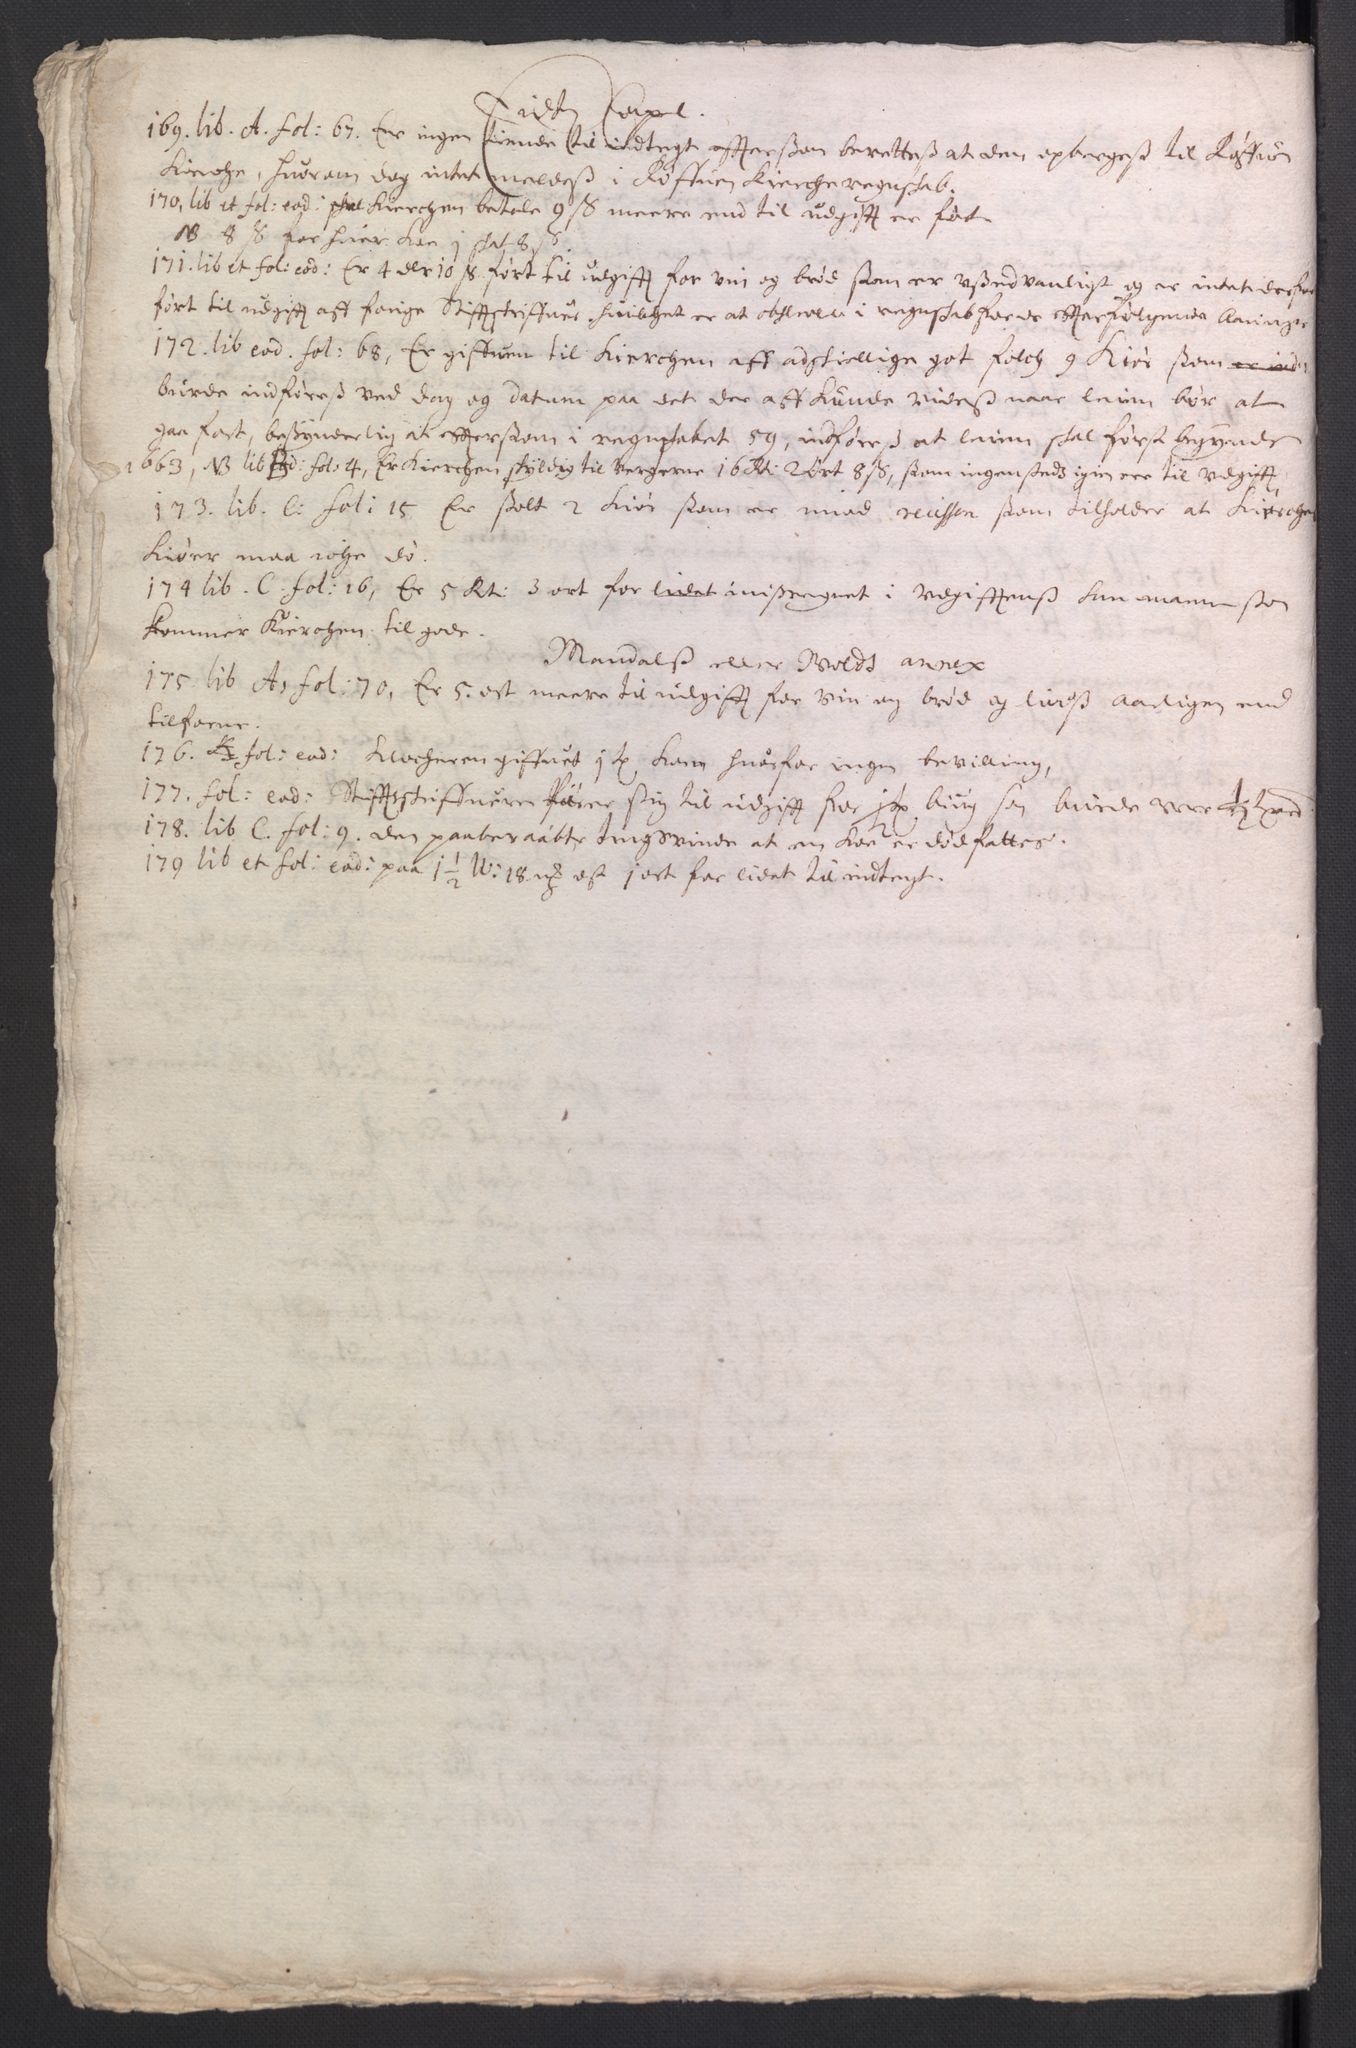 Eids Capel.
169. lib. A. fol: 67. Er ingen tiende til indtegt effterßom beretteß at den opbergeß til Røffuen
Kirche, huorom dog intet meldeß i Røffuen Kircheregnskab.
170, lib et fol: eod: skal Kierchen betale 9 ß meere end til udgifft er ført
NB 8 ß for huer Koe j stat 8 ß.
171. lib et fol: eod: Er 4 dlr 10 ß ført til udgifft for vin og brød ßom er ußedvanligt og er intet derfor
ført til udgifft aff forige Stifftskriffuer, huilchet er at i regnskab for de effterfølgende Aaringer
172. lib eod. fol: 68, Er giffuen til Kierchen aff adskiellige got folch 9 Kiør ßom er ind
burde indføreß ved dag og datum paa det der aff kunde videß naar leien bør at
gaa fort, beßynderlig at effterßom i regnskabet 59, indføres at leien skal først begynde
1663, NB lib B fol: 4, Er Kierchen skyldig til Vergerne 16 Rt: 2 ört 8 ß, ßom ingensteds igien er til udgifft
173. lib. C: fol: 15 Er ßolt 2 Kiör ßom er imod ßom tilholder at Kierchens
Kiöer maa iche dö.
174 lib. C. fol: 16, Er 5 Rt: 3 ort for lidet i vdgifftenß ßom
kommer Kierchen til gode.
Mandalß eller Wolds annex
175 lib A, fol: 70, Er 5. ort meere til udgifft for vin og brød og liuß Aarligen end
tilforne.
176. fol: eod: Klocheren giffuet j tp Korn huorfor ingen bevilling,
177. fol: eod: Stifftskriffueren fører sig til udgifft for byug ßom burde vere
178. lib C. fol: 9. den paaberaabte tingsvinde at en Koe er död fattes.
179 lib et fol: eod: paa 1 1/2 W: 18 mk ost j ort for lidet til indtegt.